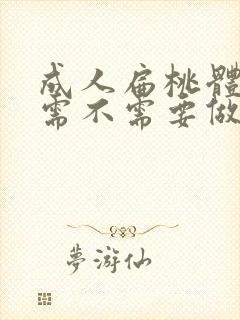 成人扁桃體
需不需要做
夢游仙